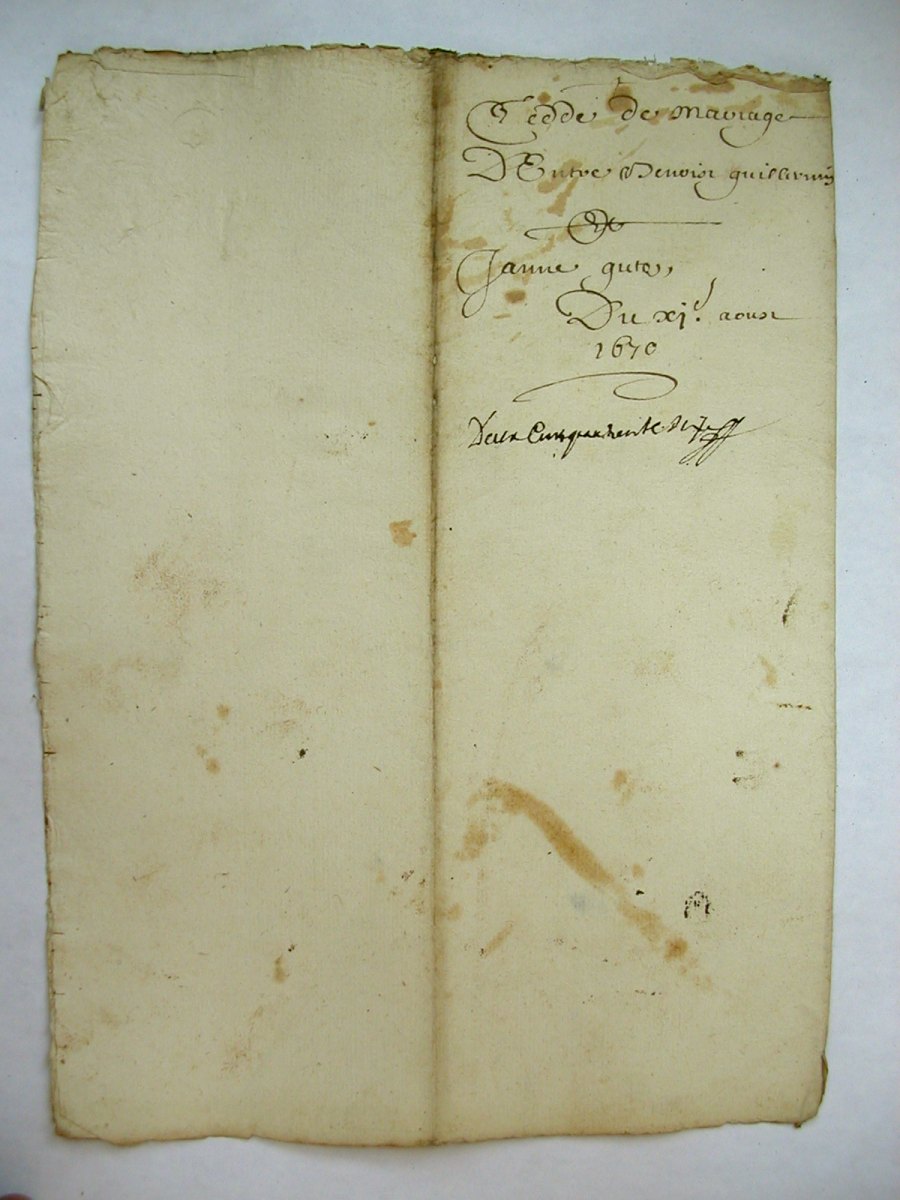 Cedde de mariage
D'Entre Benoist guillermin
Et
Janne gute
Du xj.e aoust
1670
Deux Cinquante Sept